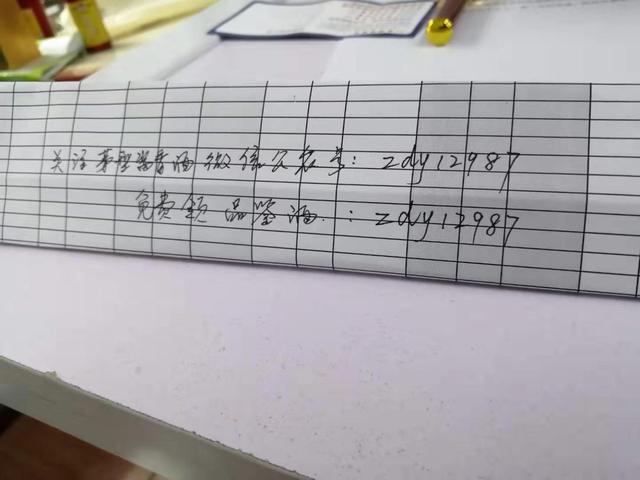 关注茅型酱香酒微信公众号：zdy12987
免费领品鉴酒：zdy12987